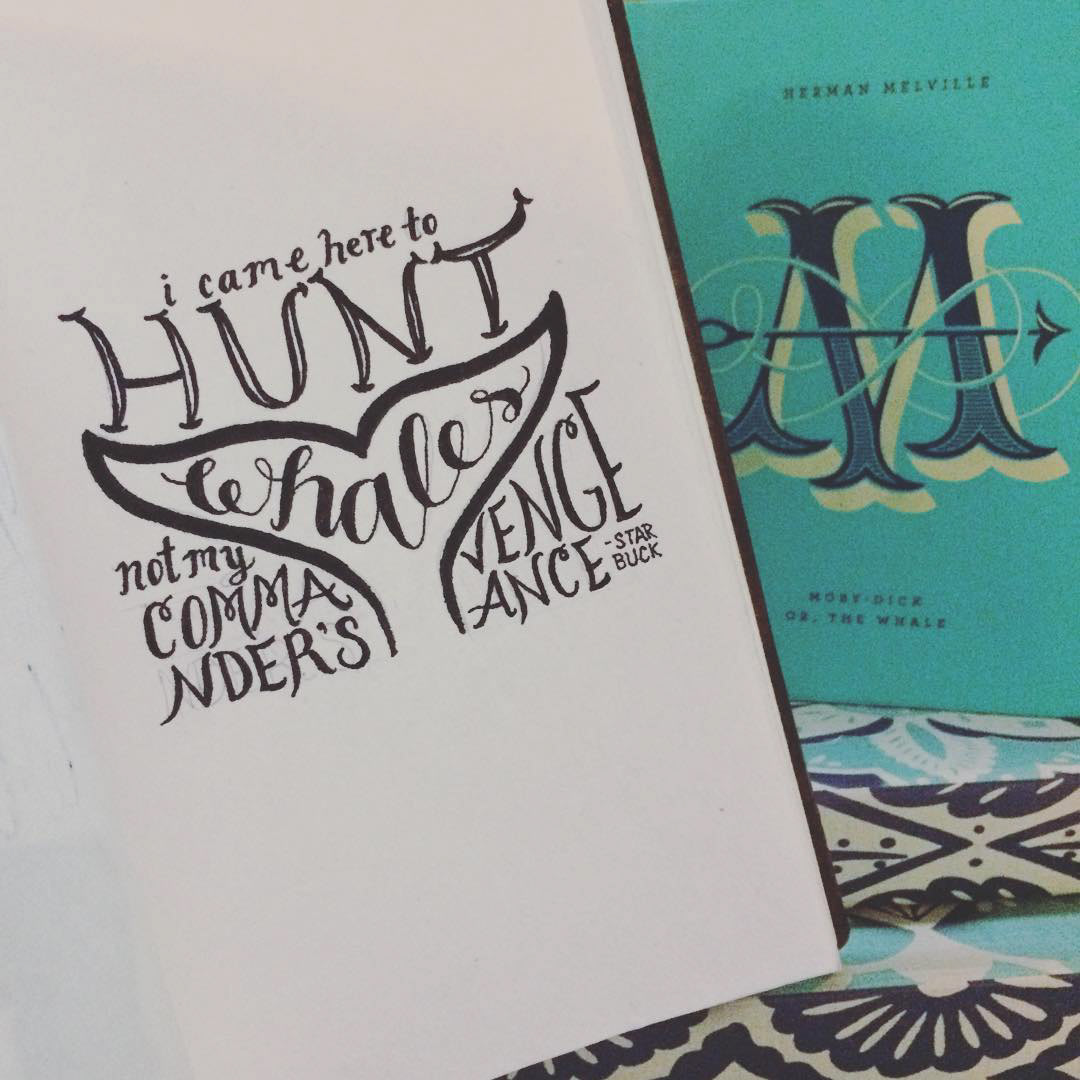 i came here to
HUNT
whales
not my
COMMA
NDER'S
VENGE
ANCE
-STAR
BUCK
HERMAN MELVILLE
M
MOBY-DICK
OR, THE WHALE